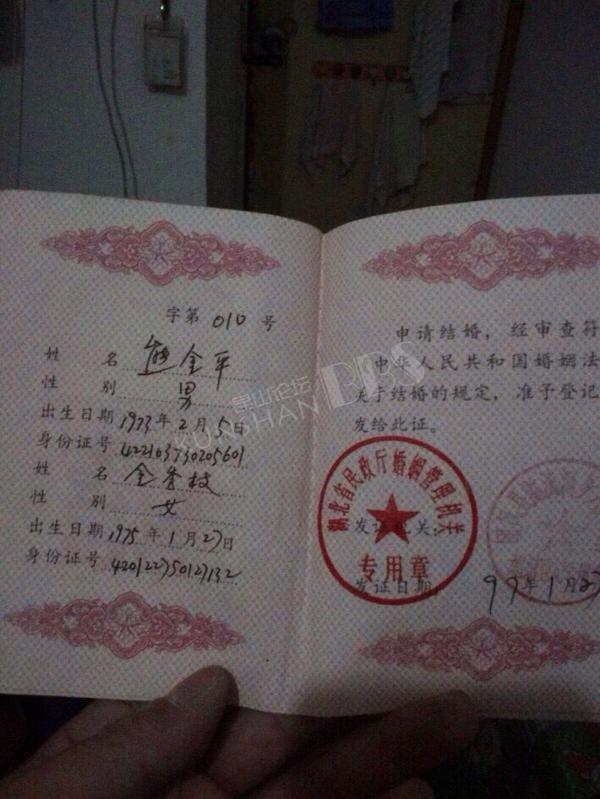 字第 010 号
姓 名 熊金平
性 别 男
出生日期 1973年2月5日
身份证号 422103730205601
姓 名 金秀枝
性 别 女
出生日期 1975年1月27日
身份证号 420122750127132
申请结婚，经审查符
中华人民共和国婚姻法
关于结婚的规定，准予登记
发给此证。
湖北省民政厅婚姻管理机关
专用章
发证机关：
发证日期： 97年1月27
昆山论坛
KUNSHAN BBS